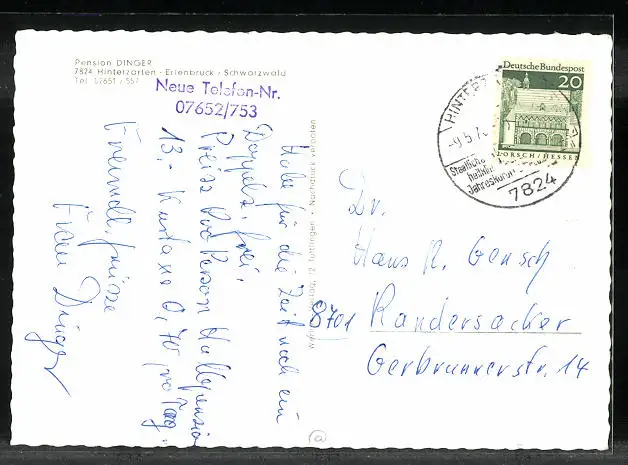 Pension DINGER
7824 Hinterzarten - Erlenbruck / Schwarzwald
Tel. 07651 / 557
Neue Telefon-Nr.
07652/753
Habe für die Zeit noch ein
Doppelz. frei.
Preis Pro Person Halbpension
13.- Kurtaxe 0,70 pro Tag.
Freundl. Grüsse
Frau Dinger
Tuttlingen · Nachdruck verboten
Deutsche Bundespost
20
LORSCH/HESSEN
HINTERZ
-9.5.7
Staatliche
heilkl
Jahreskuro
7824
Dr.
Hans R. Gensch
8701 Randersacker
Gerbrunnerstr. 14
@